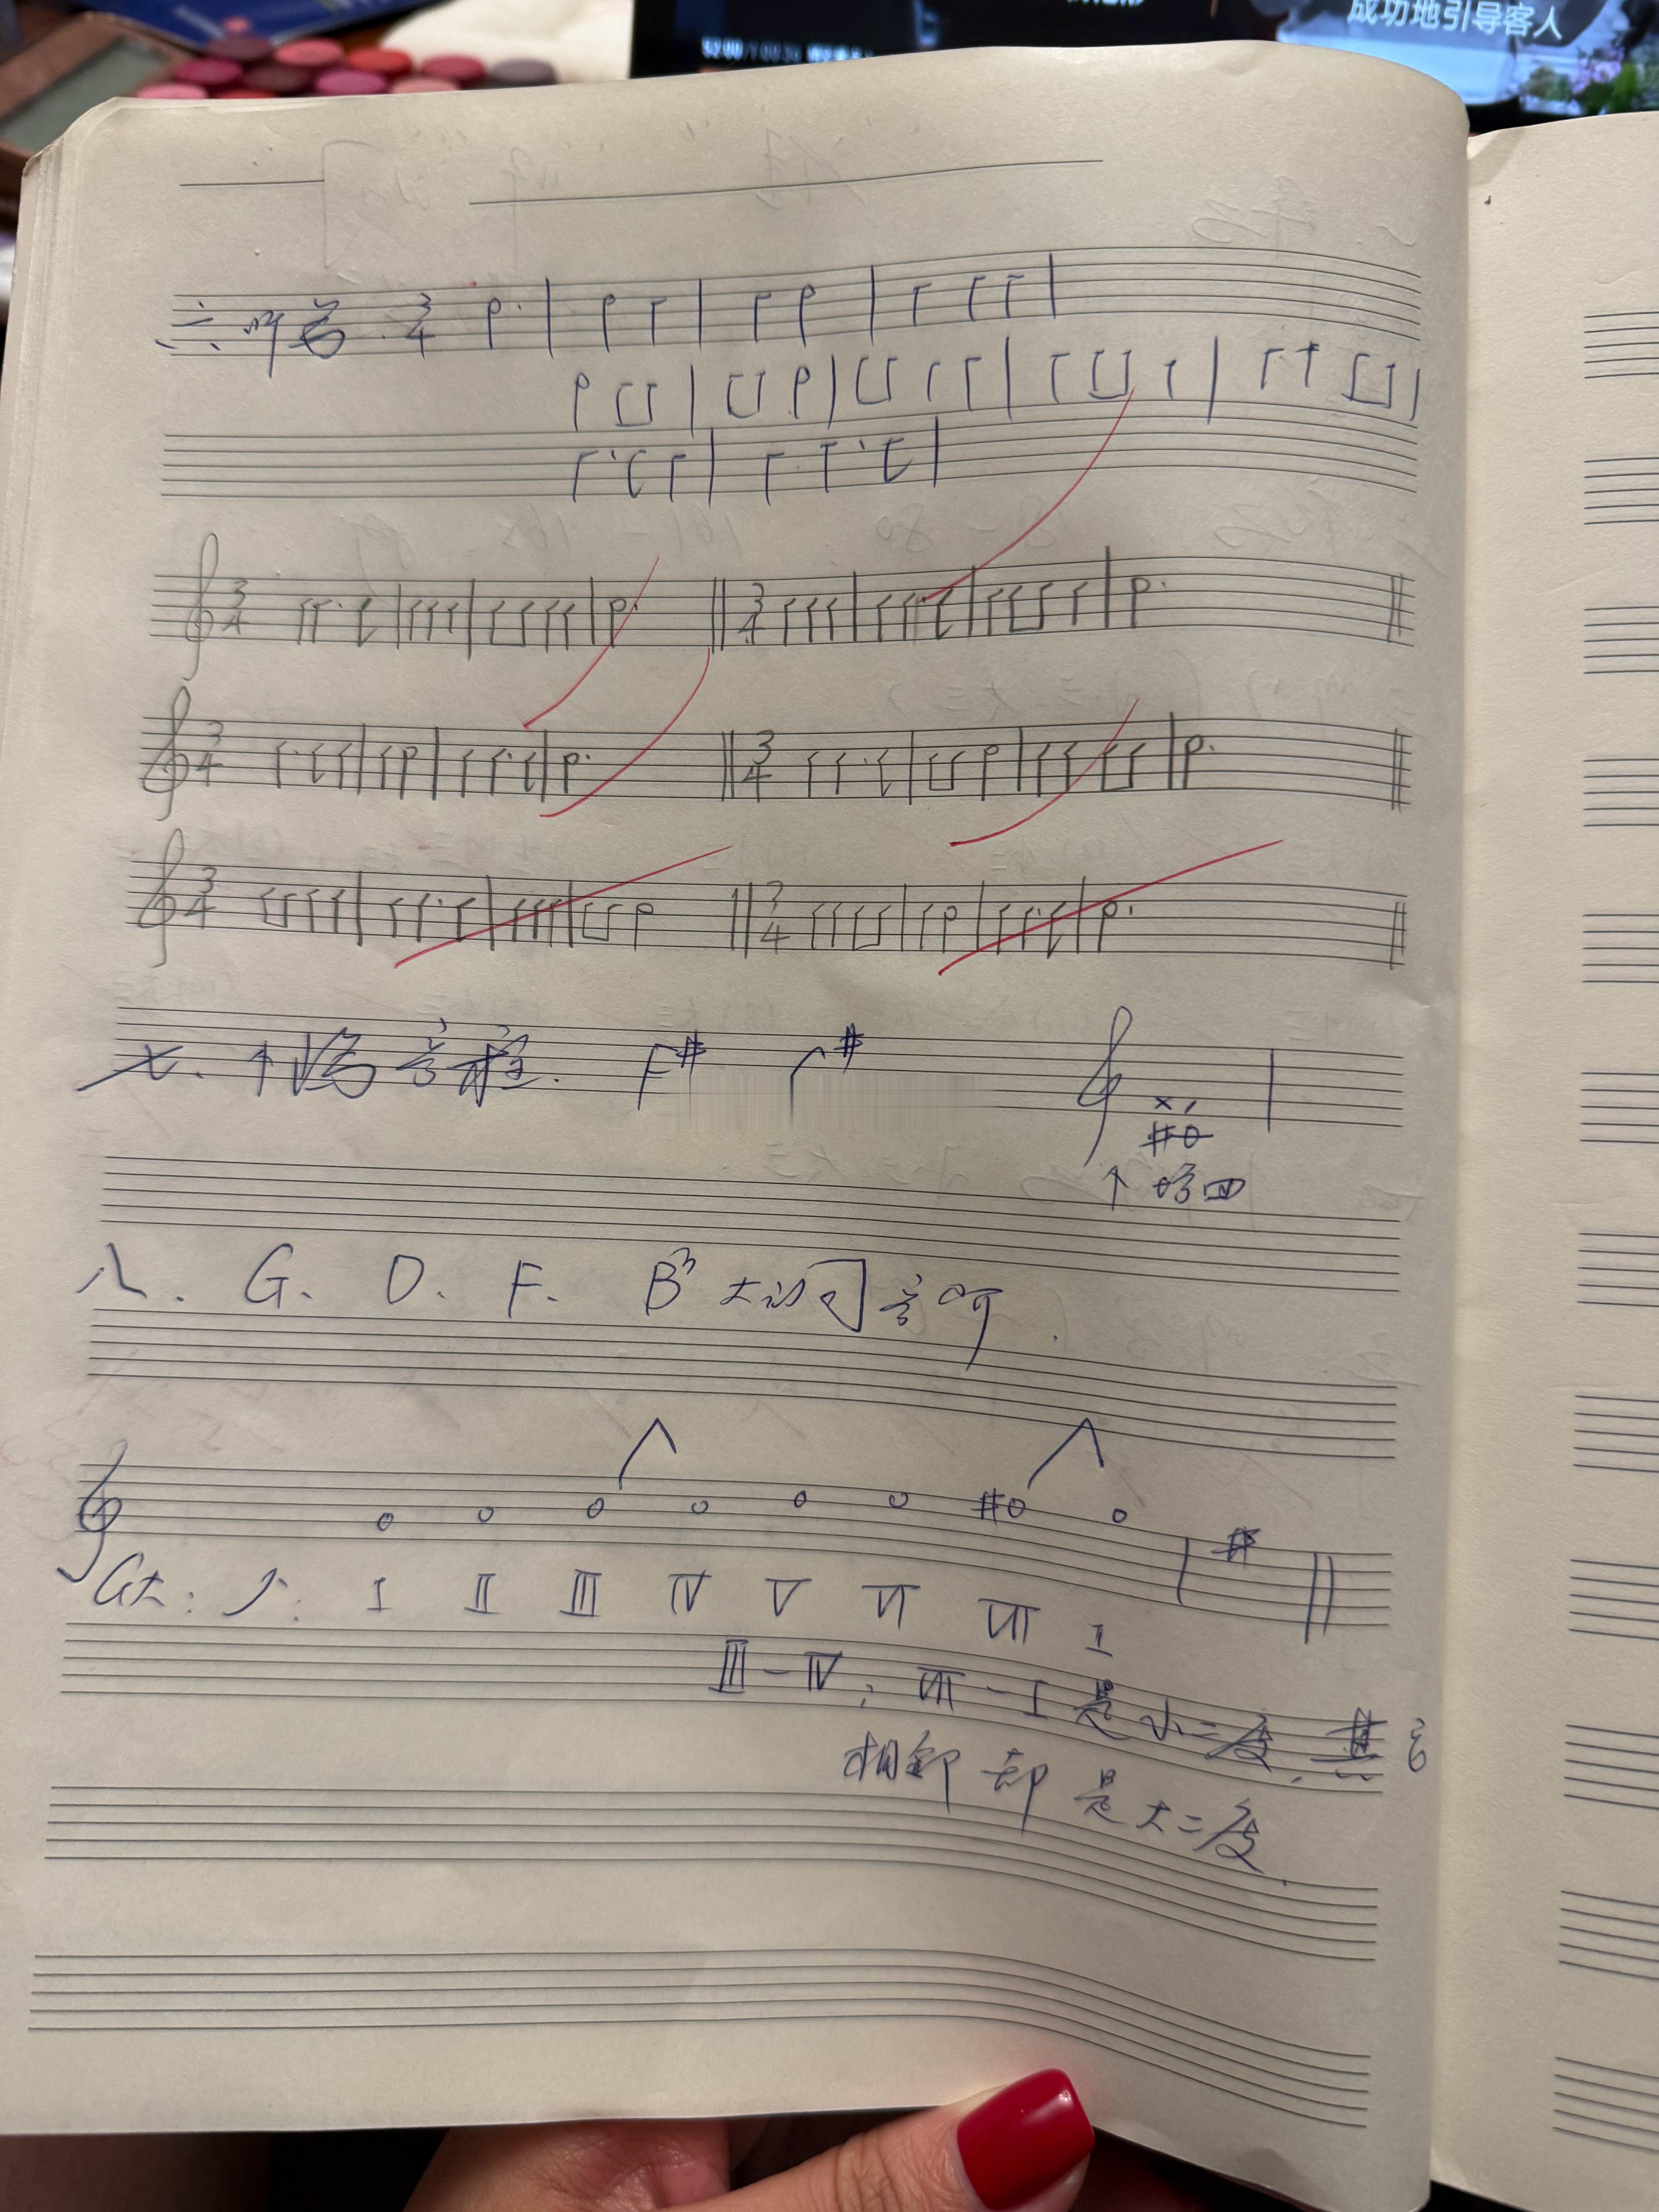 成功地引导客人
六. 听写. 3/4
3/4 3/4
3/4 3/4
3/4 3/4
七. ↑ 构音程. F# r#
↑ 增四
八. G. D. F. B 大调音阶.
# #
G大: ↑: I II III IV V VI VII I
III-IV, VII-I 是小二度. 其它
相邻都是大二度.